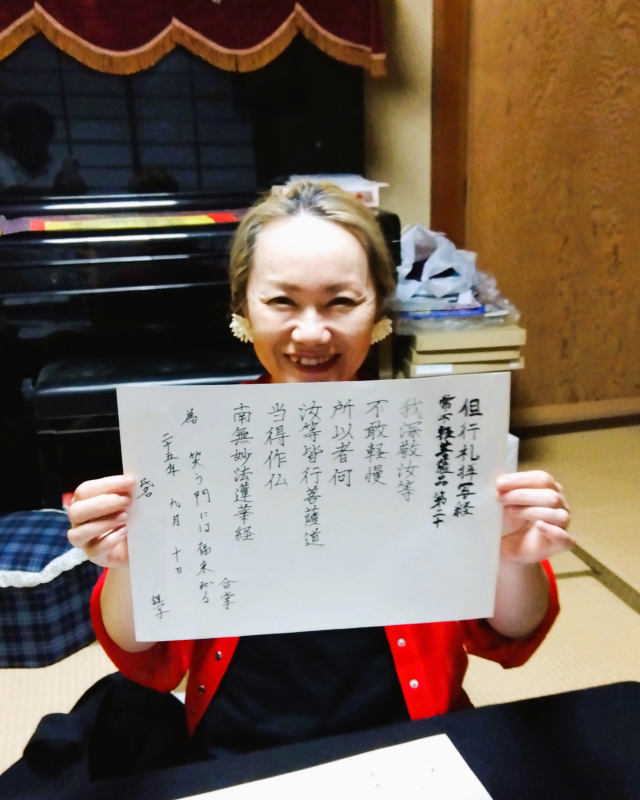 但行礼拝写経
常不軽菩薩品 第二十
我深敬汝等
不敢軽慢
所以者何
汝等皆行菩薩道
当得作仏
南無妙法蓮華経
合掌
為 笑う門には福来たる
二十五年 九月 十日
氏名